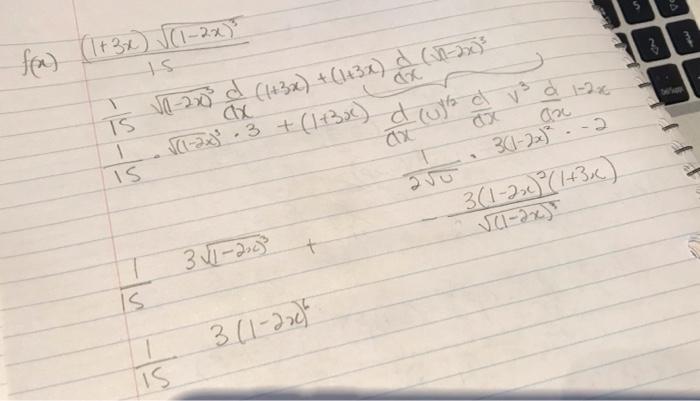 f(x) (1+3x) √(1-2x)³ / 15
1/15 √(1-2x)³ d/dx (1+3x) + (1+3x) d/dx (√1-2x)³
1/15 · √(1-2x)³ · 3 + (1+3x) d/dx (u)^1/2 d/dx v³ d/dx 1-2x
1/2√u · 3(1-2x)² · -2
1/15 3√(1-2x)³ + - 3(1-2x)²(1+3x) / √(1-2x)³
1/15 3(1-2x)⁶